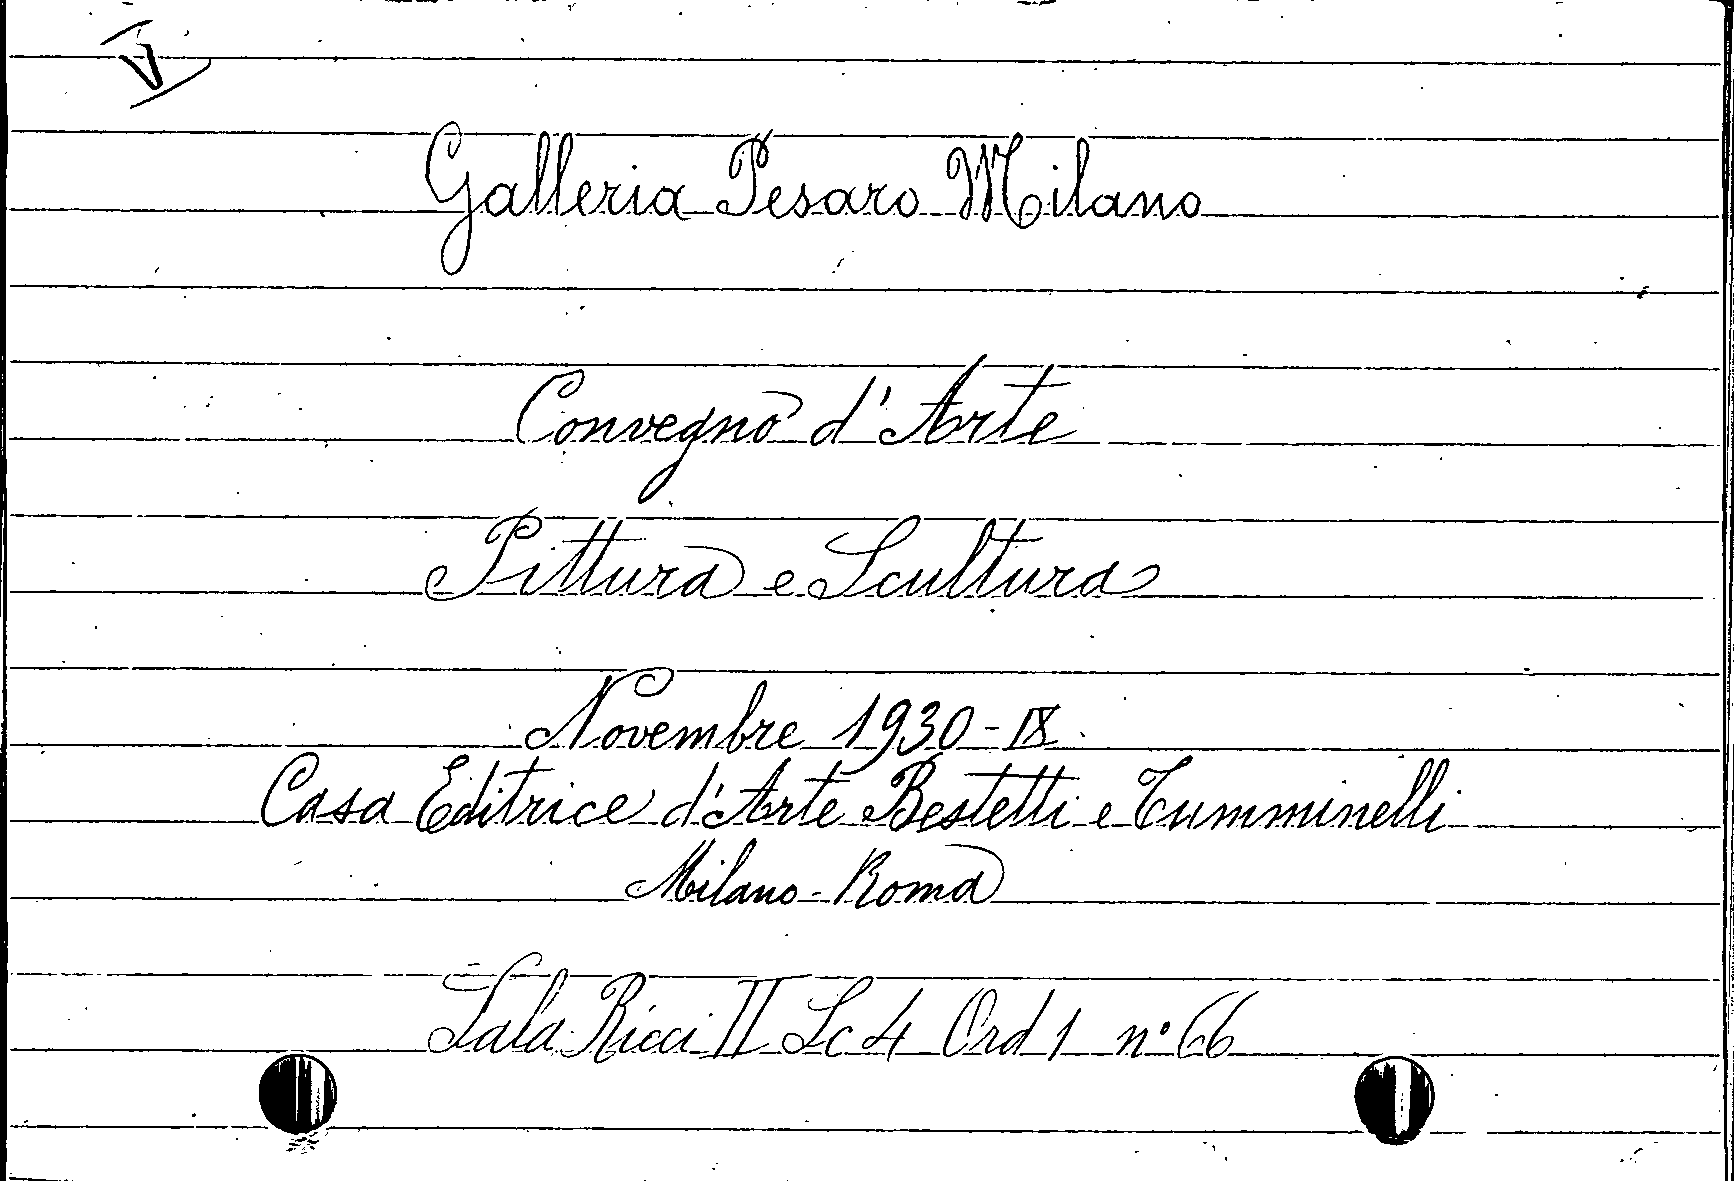 V
Galleria Pesaro Milano
Convegno d'Arte
Pittura e Scultura
Novembre 1930-IX
Casa Editrice d'Arte Bestetti e Tumminelli
Milano-Roma
Sala Ricci II Sc 4 Ord 1 n° 66